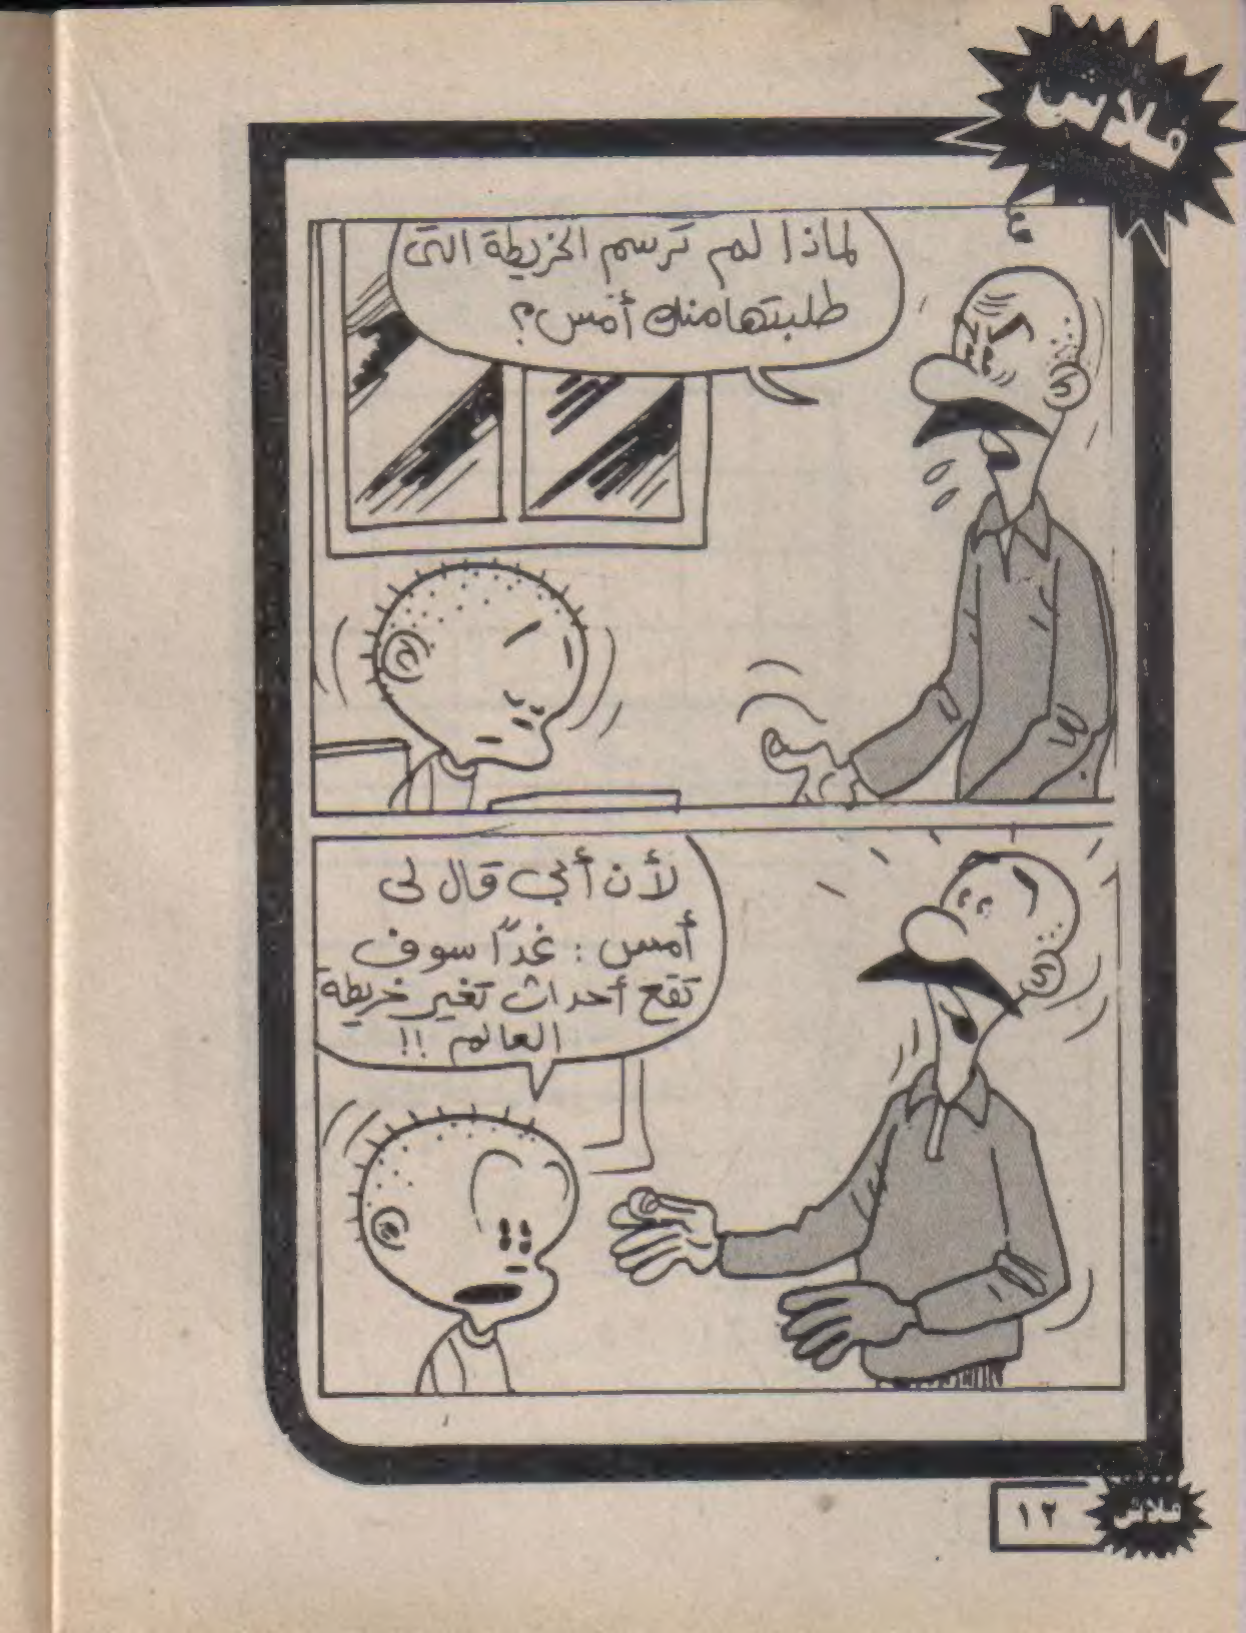 فلاش
لماذا لم ترسم الخريطة التى
طلبتها منك أمس؟
لأن أبي قال لى
أمس : غدًا سوف
تقع أحداث تغير خريطة
العالم !!
١٢
فلاش